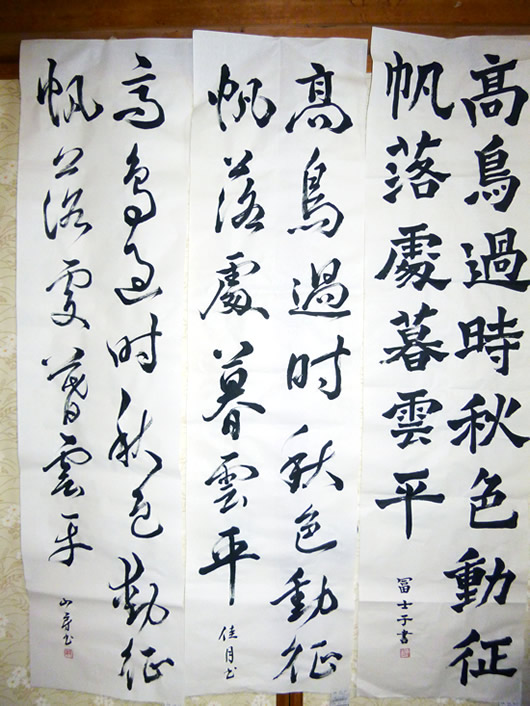 高鳥過時秋色動征
帆落處暮雲平
冨士子書
高鳥過时秋色動征
帆落處暮雲平
佳月书
高鳥過时秋色動征
帆落处暮雲平